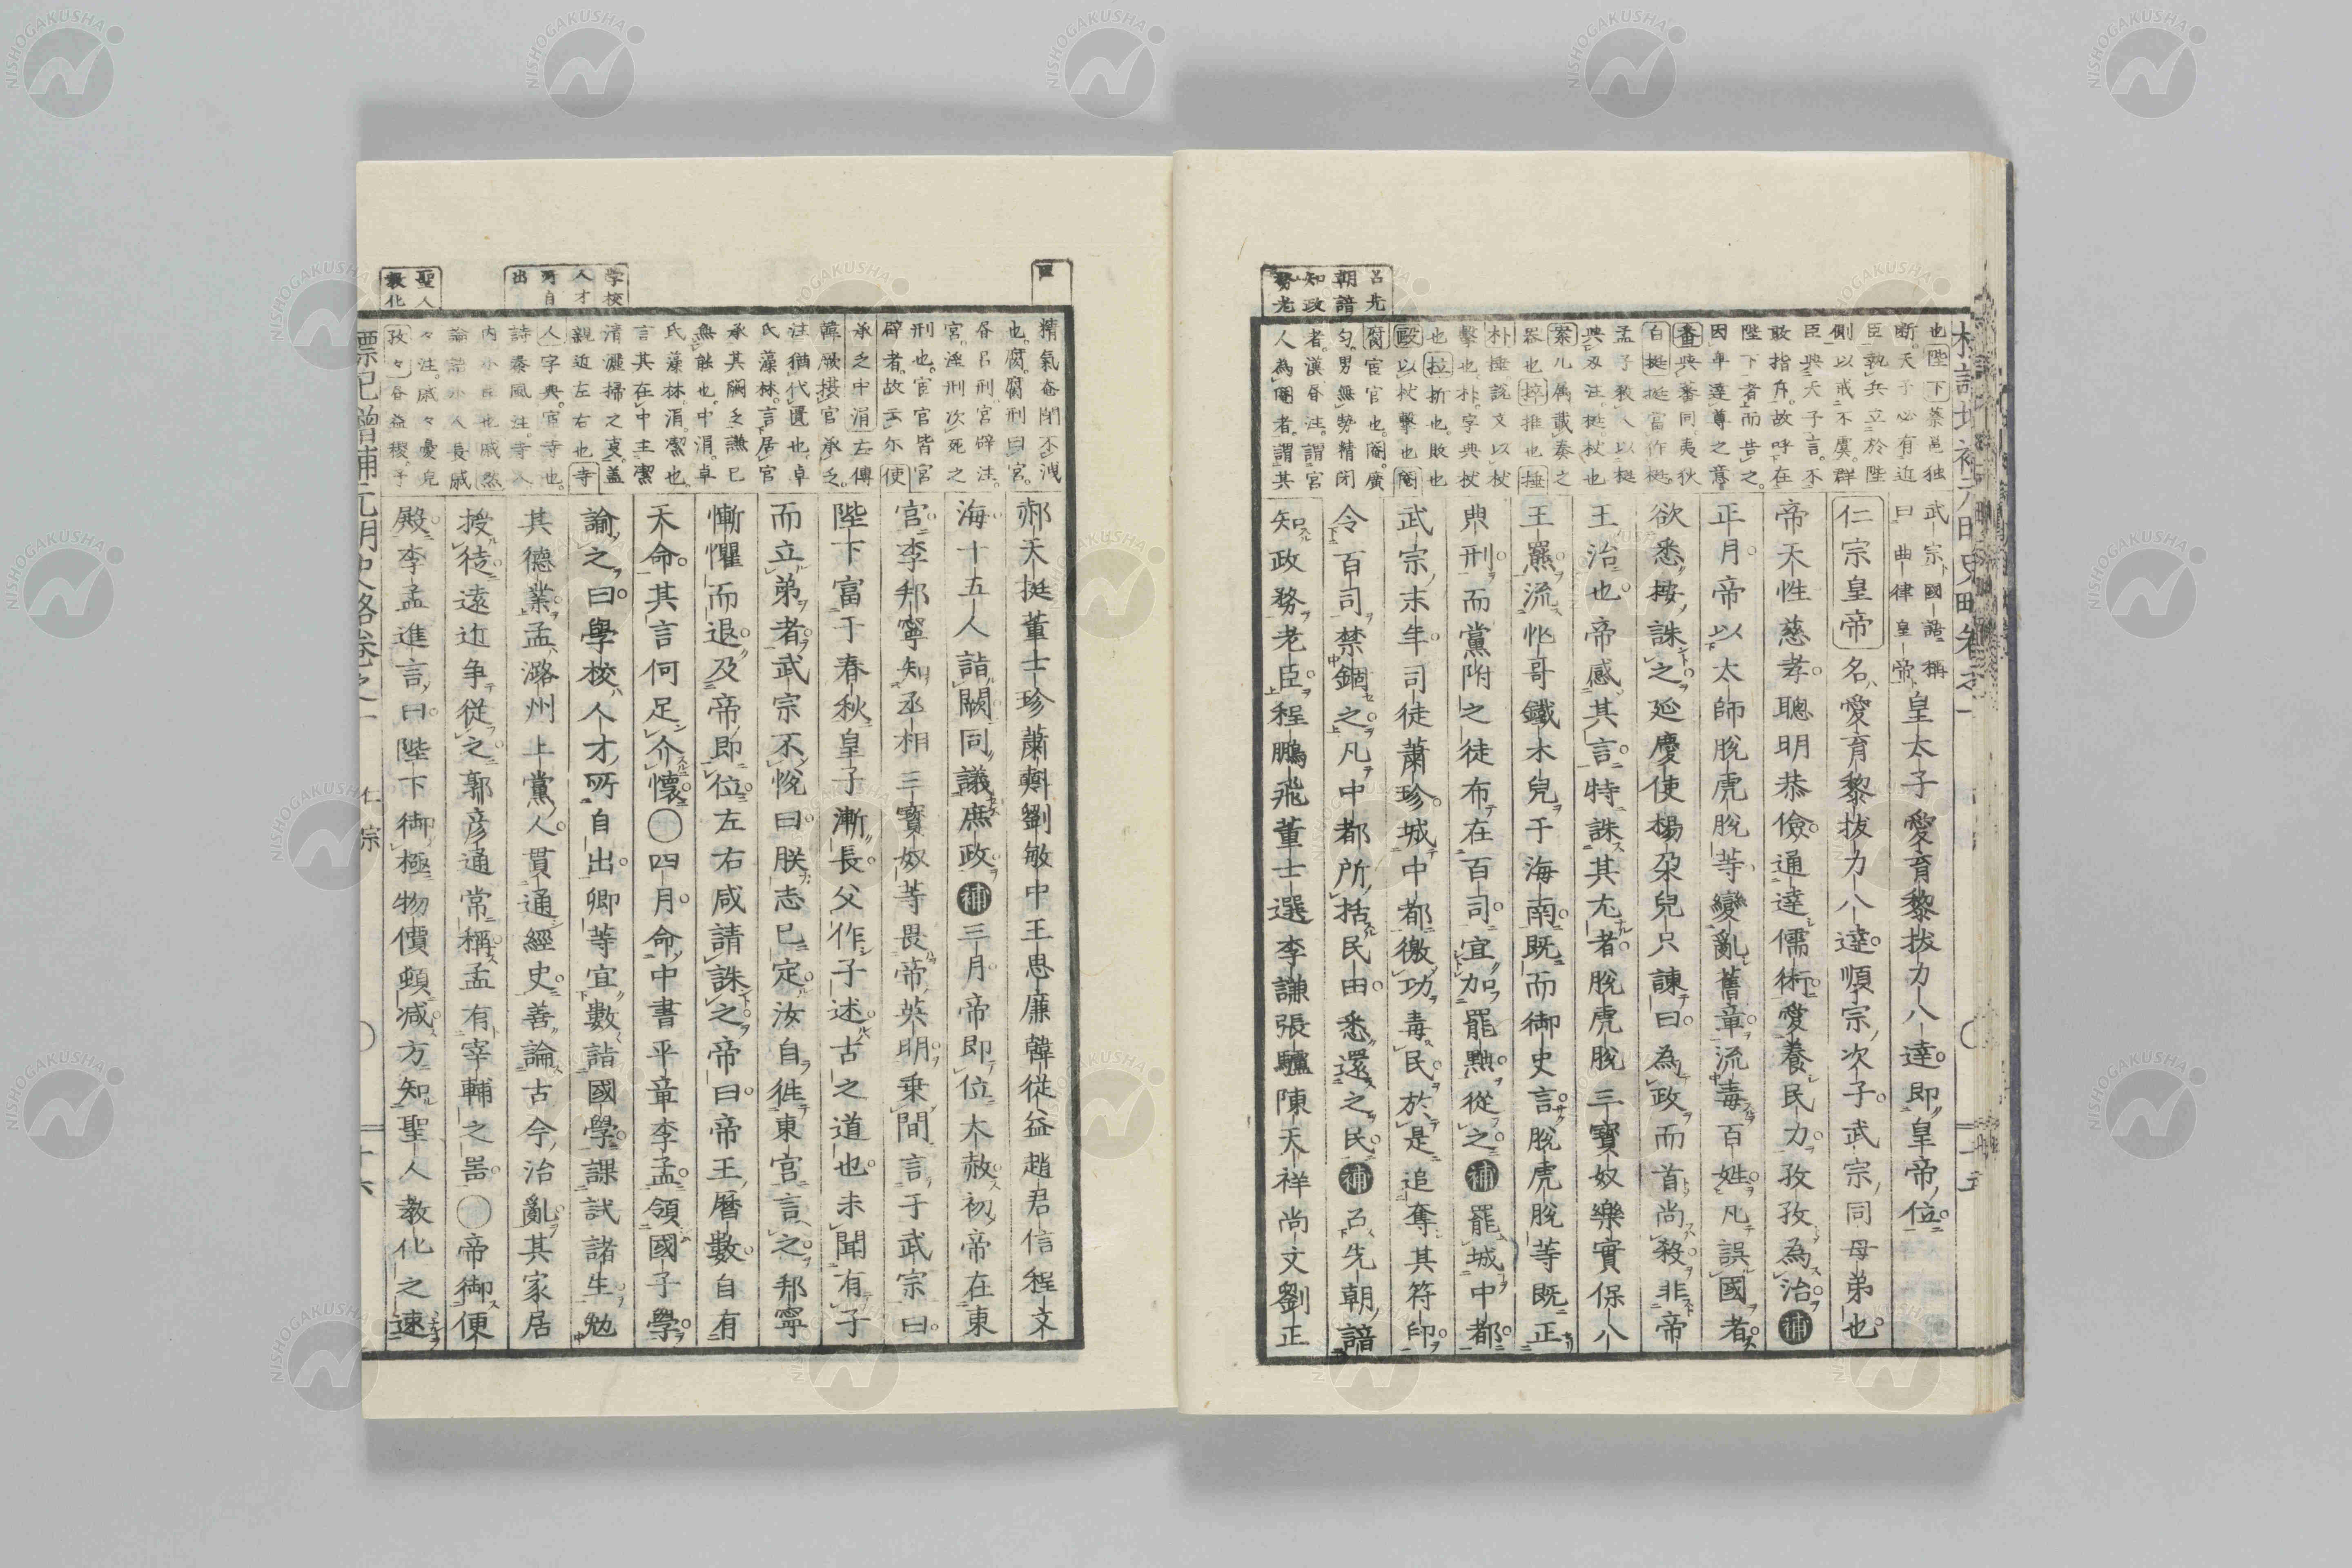 呂先
朝諳
知政
務老
也陛下蔡邕独
断天子必有近
臣執兵立於陛
側以戒不虞群
臣與天子言不
敢指斥故呼在
陛下者而告之
因卑達尊之意
番典蕃同夷狄
白挺挺當作梃
孟子殺人以梃
與刄注梃杖也
案几属載奏之
器也
朴捶説文以杖
擊也朴字典杖
也拉折也敗也
毆以杖擊也閹
腐宦官也閹廣
匀男無勢精閉
者漢書注謂宮
人為閹者謂其
武宗國語稱
曰曲律皇帝
皇太子愛育黎拔力八達即皇帝位
仁宗皇帝名愛育黎拔力八達順宗次子武宗同母弟也
帝天性慈孝聰明恭儉通達儒術愛養民力孜孜為治補
正月帝以太師脫虎脫等變亂舊章流毒百姓凡誤國者
欲悉按誅之延慶使楊朶兒只諫曰為政而首尚殺非帝
王治也帝感其言特誅其尢者脫虎脫三寶奴樂實保八
王羆流忙哥鐵木兒于海南既而御史言脫虎脫等既正
典刑而黨附之徒布在百司宜加罷黜從之補罷城中都
武宗末年司徒蕭珍城中都徼功毒民於是追奪其符印
令百司禁錮之凡中都所括民田悉還之民補召先朝諳
知政務老臣程鵬飛董士選李謙張驢陳天祥尚文劉正
学校
人才
所自
出
聖人
教化
精氣奄閉不洩
也腐腐刑曰宮
書呂刑宮辟注
宮淫刑次死之
刑也宦官皆宮
辟者故云尓使
承之中涓左傳
韓厥攝官承乏
注猶代匱也卓
氏藻林言居官
承其闕乏謙已
無能也中涓卓
氏藻林涓潔也
言其在中主潔
清灑掃之事蓋
親近左右也寺
人字典宦寺也
詩秦風注寺人
内小臣也戚然
論語小人長戚
々注戚々憂皃
孜々書益稷予
郝天挺董士珍蕭㪺劉敏中王思廉韓從益趙君信程文
海十五人詣闕同議庶政補三月帝即位大赦初帝在東
宮李邦寧知丞相三寶奴等畏帝英明乗間言于武宗曰
陛下富于春秋皇子漸長父作子述古之道也未聞有子
而立弟者武宗不悅曰朕志已定汝自徃東宮言之邦寧
慚懼而退及帝即位左右咸請誅之帝曰帝王曆數自有
天命其言何足介懷〇四月命中書平章李孟領國子學
諭之曰學校人才所自出卿等宜數詣國學課試諸生勉
其德業孟潞州上黨人貫通經史善論古今治亂其家居
授徒遠近争從之郭彦通常稱孟有宰輔之噐〇帝御便
殿李孟進言曰陛下御極物價頓減方知聖人教化之速
標記增補元明史略卷之一 仁宗 〇 十六
NISHOGAKUSHA